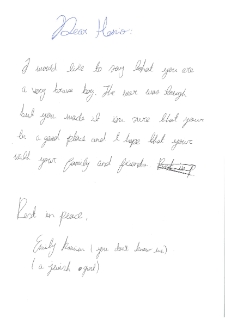 Dear Hanso:
I would like to say that you are
a very brave boy. The war was tough
but you made it im sure that your
in a good place and I hope that your
with your family and friends.
Rest in peace.
Emily (you don't know me)
(a jewish girl)